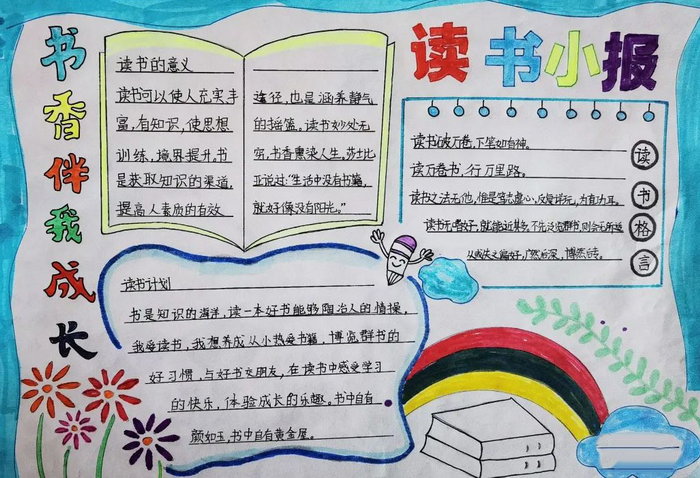 书香伴我成长
读书小报
读书的意义
读书可以使人充实丰
富,有知识,使思想
训练,境界提升,书
是获取知识的渠道,
提高人素质的有效
途径,也是涵养静气
的摇篮,读书妙处无
穷,书香熏染人生,莎士比
亚说过:“生活中没有书籍,
就好像没有阳光。”
读书破万卷,下笔如有神。
读万卷书,行万里路。
读书之法无他,惟是笃志虚心,反复详玩,为有功耳。
读书无嗜好,就能尽其多,不先泛览群书,则会无所适
从或失之偏好,广然后深,博然后专。
读书格言
读书计划
书是知识的海洋,读一本好书能够陶冶人的情操,
我爱读书,我想养成从小热爱书籍,博览群书的
好习惯,与好书交朋友,在读书中感受学习
的快乐,体验成长的乐趣。书中自有
颜如玉,书中自有黄金屋。